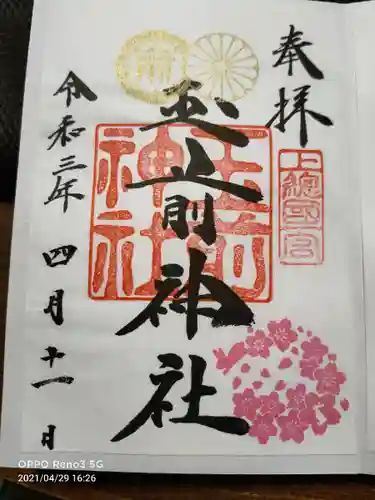 奉拝
上總國一宮
玉前神社
玉前神社
令和三年四月十一日
OPPO Reno3 5G
2021/04/29 16:26